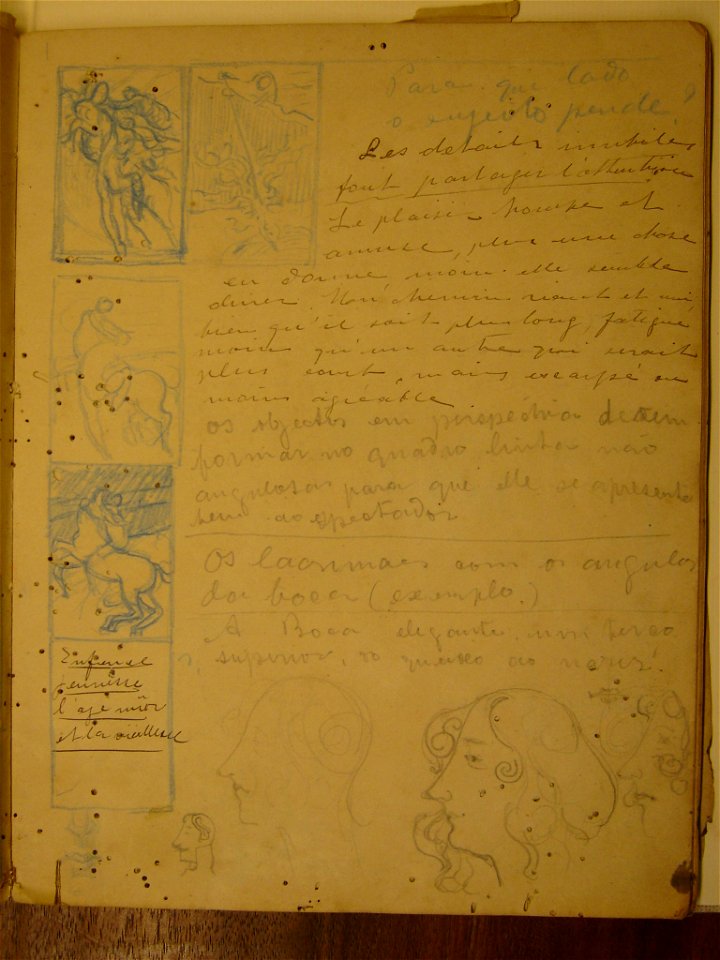 Para que lado
o sujeito pende?
Les details inutiles
font partager l'attention
Le plaisir
amuse, plus une chose
en donne moin elle semble
durer. Un chemin riant et uni
bien qu'il soit plus long, fatigue
moin qu'un autre qui serait
plus court, mais escarpé ou
moins agreable
os objectos em perspectiva devem
formar no quadro linha não
angulosas para que elle se apresente
bem ao espectador
Os lacrimaes com os angulos
da bocca (exemplo.)
A Boca elegante, um terço
superior, do queixo ao nariz.
Enfance
jeunesse
l'age mûr
et la vieillesse